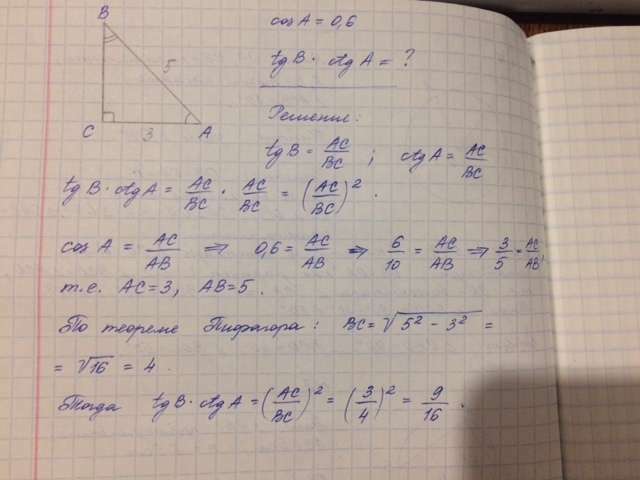 B
cos A = 0,6
5
tg B · ctg A = ?
C 3 A
Решение:
tg B = AC/BC ; ctg A = AC/BC
tg B · ctg A = AC/BC · AC/BC = (AC/BC)² .
cos A = AC/AB ⇒ 0,6 = AC/AB ⇒ 6/10 = AC/AB ⇒ 3/5 = AC/AB,
т.е. AC=3, AB=5.
По теореме Пифагора: BC = √(5² − 3²) =
= √16 = 4 .
Тогда tg B · ctg A = (AC/BC)² = (3/4)² = 9/16 .